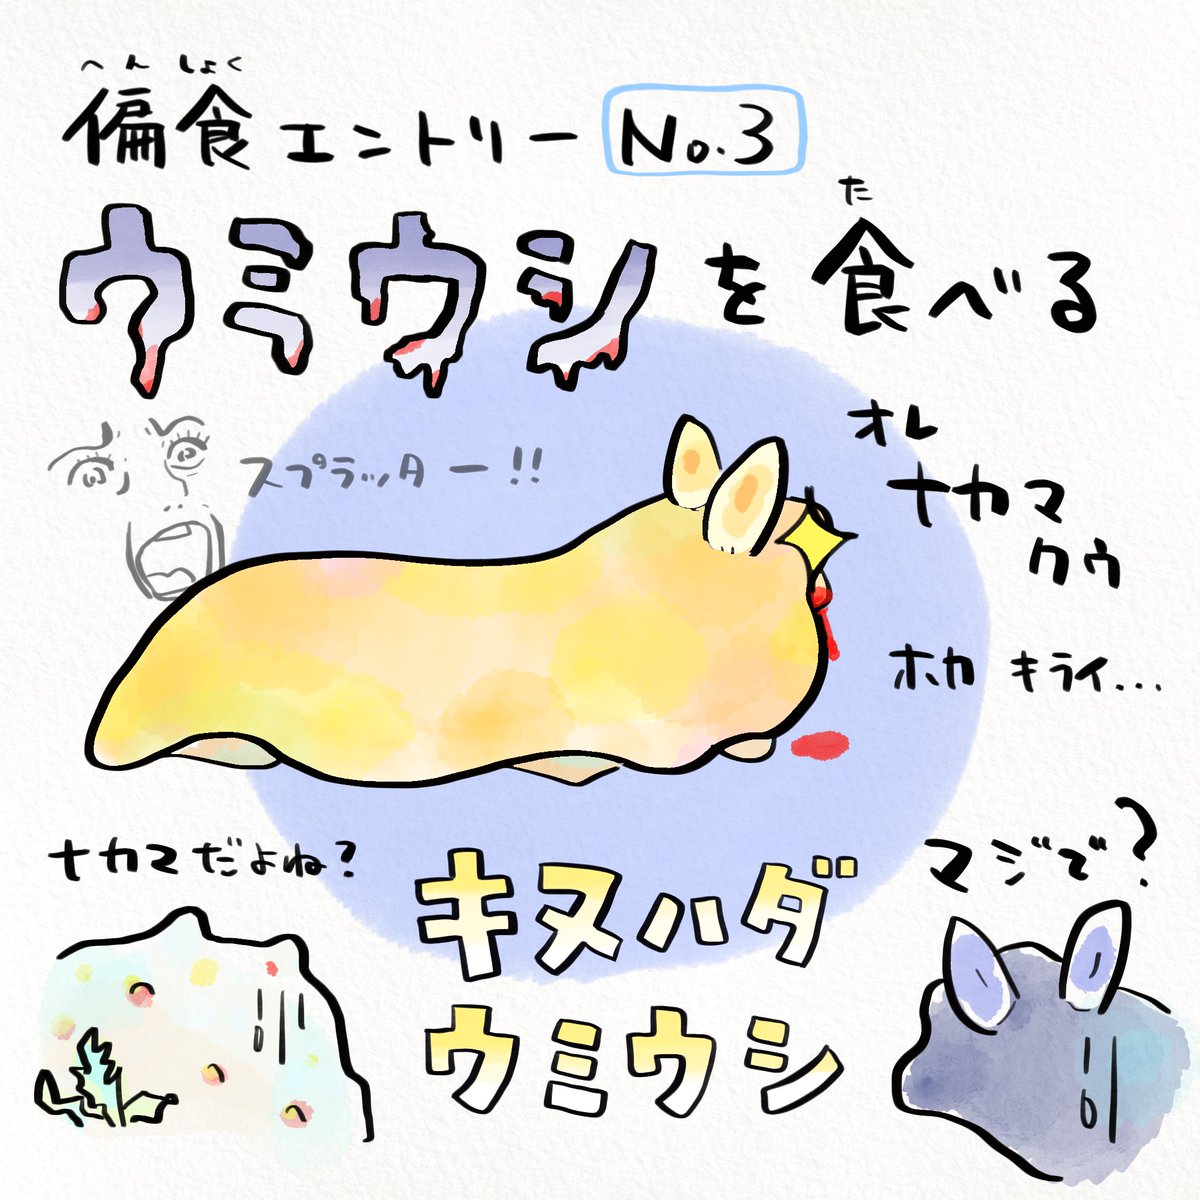 へんしょく
偏食エントリー No.3
た
ウミウシを食べる
スプラッター!!
オレ
ナカマ
クウ
ホカ キライ...
ナカマだよね?
マジで?
キヌハダ
ウミウシ